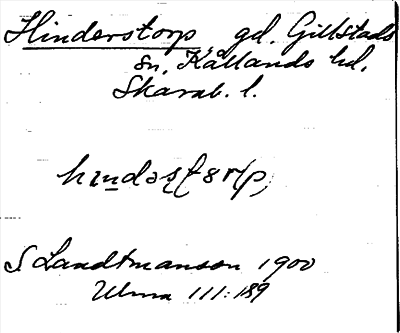 Hinderstorp, gd. Gillstads
sn, Kållands hd,
Skarab. l.
S Landtmanson 1900
Ulma 111:189